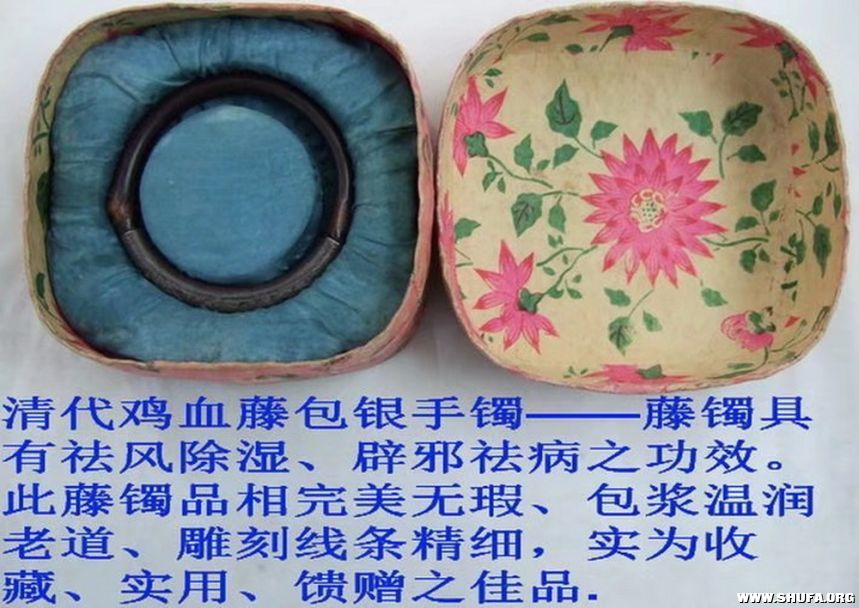 清代鸡血藤包银手镯——藤镯具
有祛风除湿、辟邪祛病之功效。
此藤镯品相完美无瑕、包浆温润
老道、雕刻线条精细，实为收
藏、实用、馈赠之佳品.
WWW.SHUFA.ORG